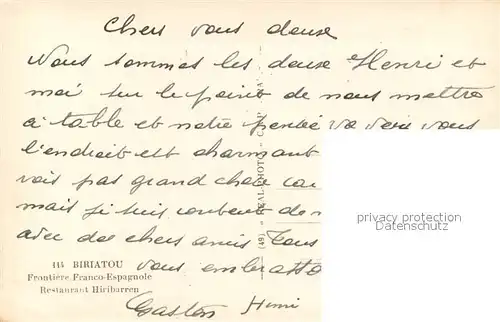 Chers vous deux
Nous sommes les deux Henri et
moi sur le point de nous mettre
à table et notre pensée va vers vous
l'endroit est charmant
vois pas grand chose
mais je suis content de
avec des chers amis Tous
vous embrasse
Gaston Henri
114 BIRIATOU
Frontière Franco-Espagnole
Restaurant Hiribarren
(49) - REAL-PHOTO
privacy protection
www.oldthing.de